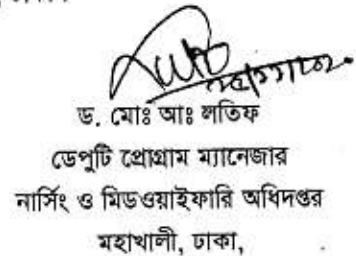 ড. মোঃ আঃ লতিফ
ডেপুটি প্রোগ্রাম ম্যানেজার
নার্সিং ও মিডওয়াইফারি অধিদপ্তর
মহাখালী, ঢাকা,